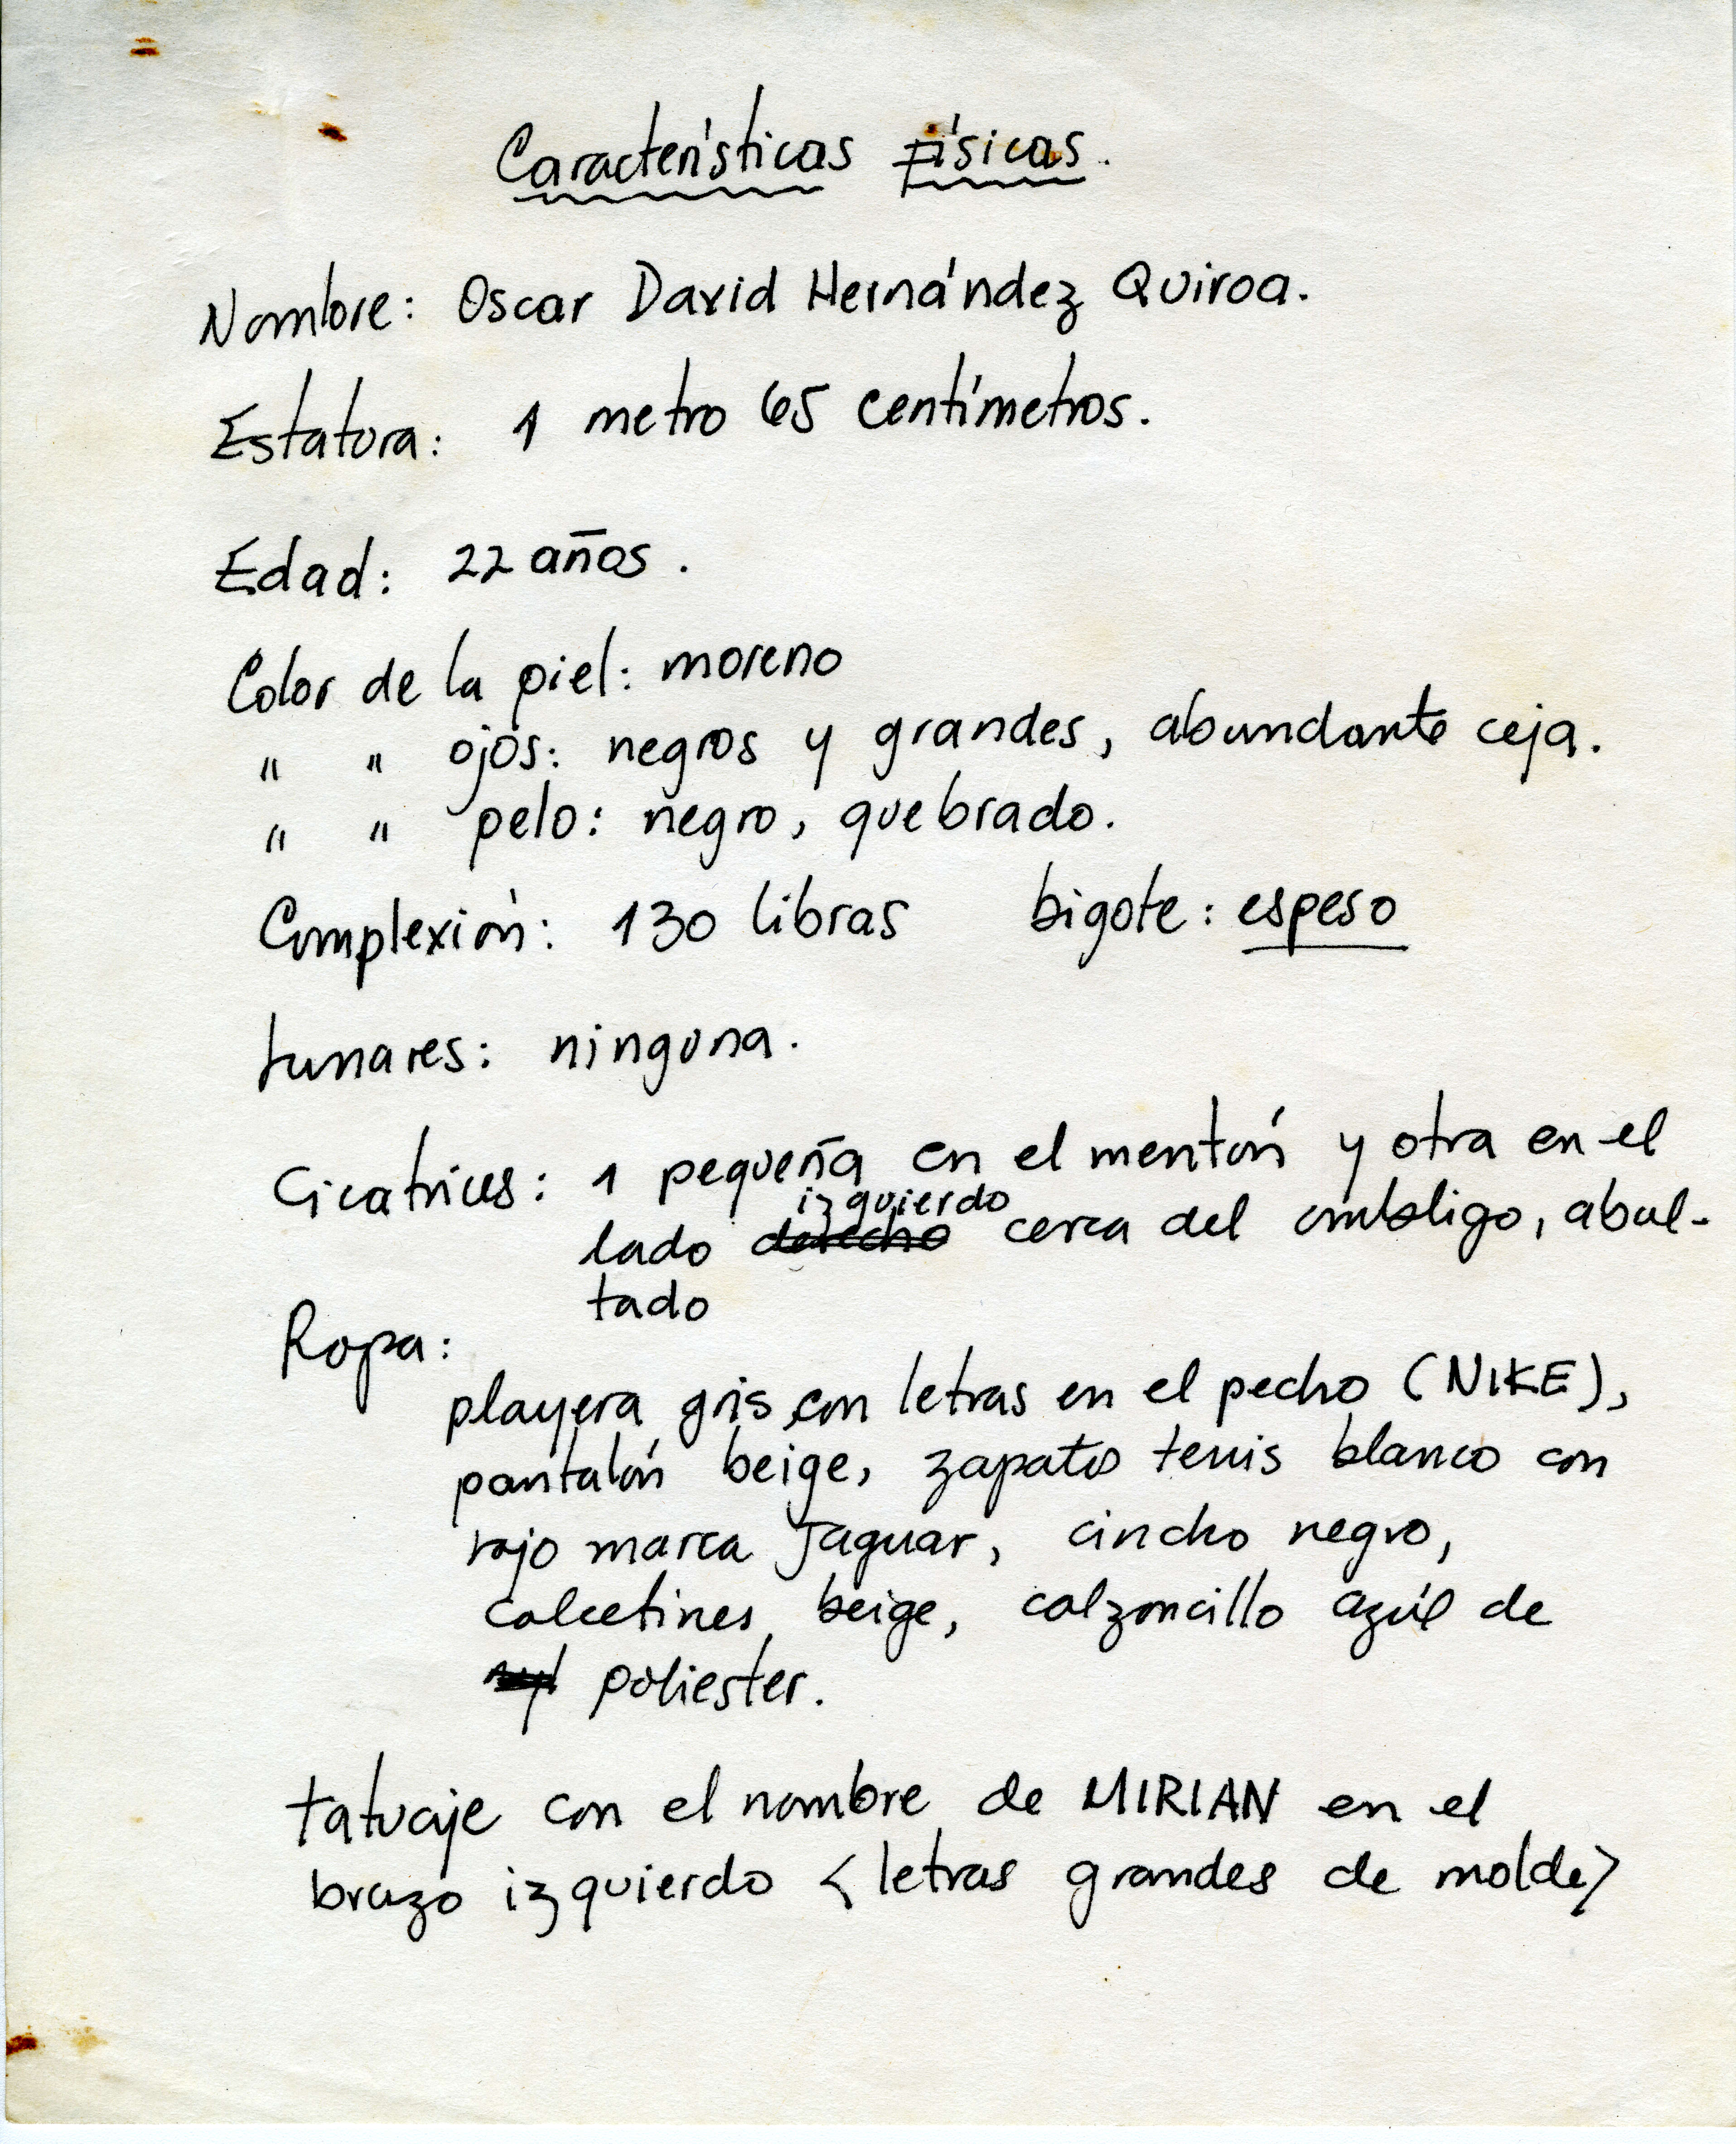 Características Físicas.
Nombre: Oscar David Hernández Quiroa.
Estatura: 1 metro 65 centímetros.
Edad: 22 años.
Color de la piel: moreno
" " ojos: negros y grandes, abundante ceja.
" " pelo: negro, quebrado.
Complexión: 130 libras bigote: espeso
Lunares: ninguna.
Cicatrices: 1 pequeña en el mentón y otra en el
izquierdo
lado derecho cerca del ombligo, abul-
tado
Ropa:
playera gris, con letras en el pecho (NIKE),
pantalón beige, zapato tenis blanco con
rojo marca Jaguar, cincho negro,
calcetines, beige, calzoncillo azúl de
poliester.
tatuaje con el nombre de MIRIAN en el
brazo izquierdo <letras grandes de molde>